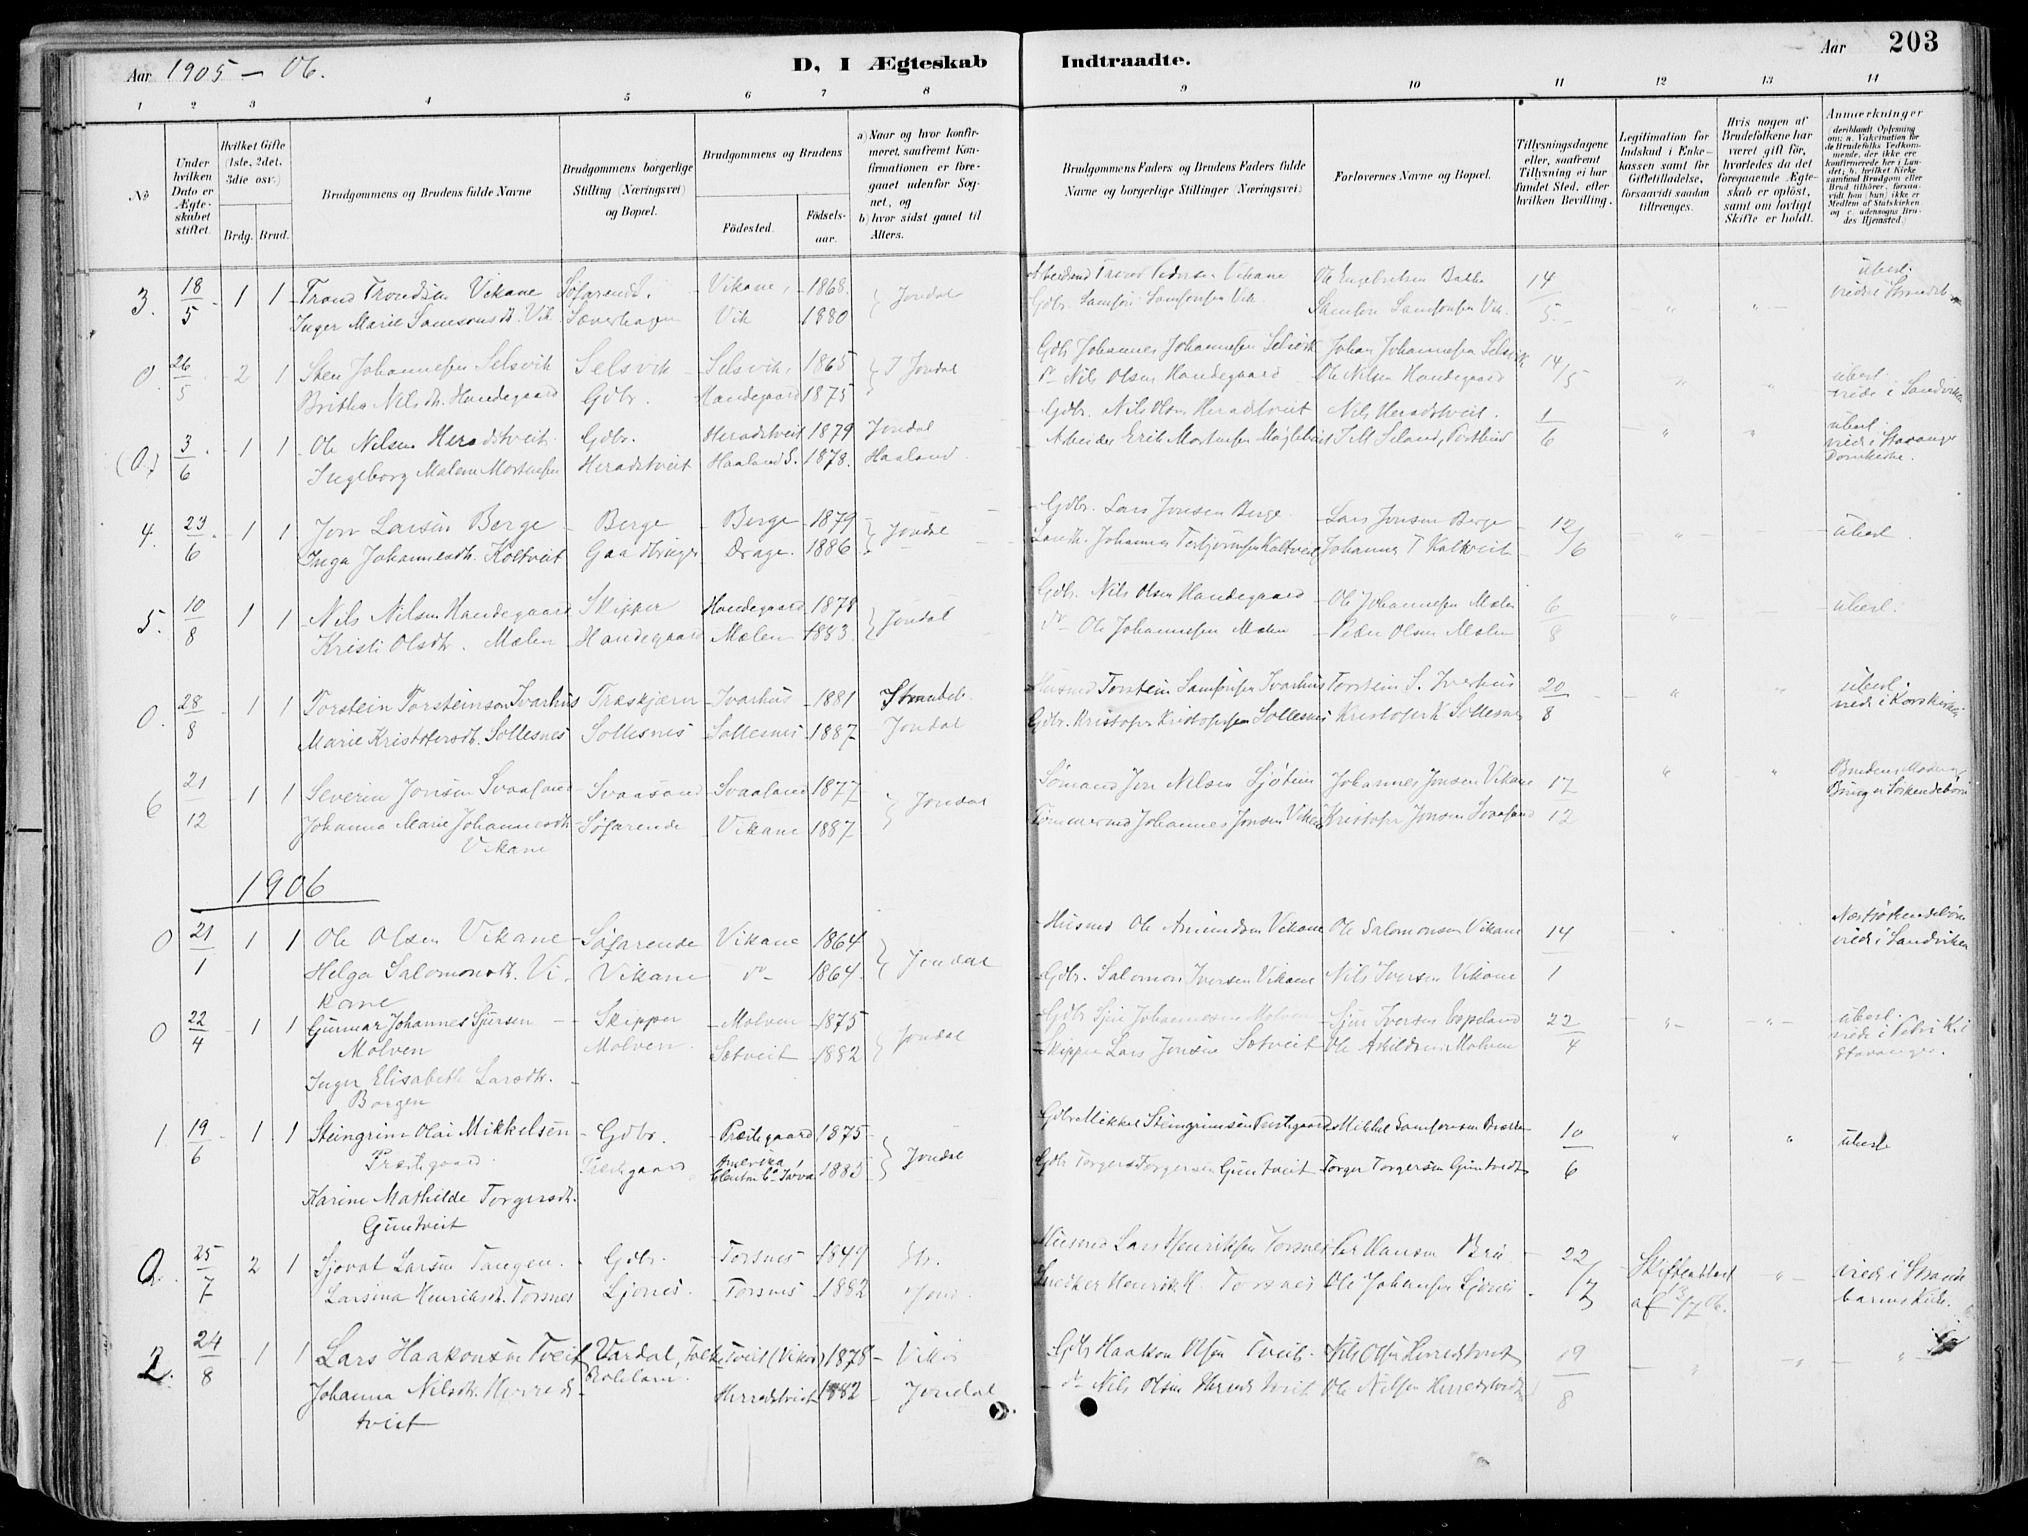 Aar 1905 – 06.
D, I Ægteskab Indtraadte.
Aar 203
1 2 3 4 5 6 7 8 9 10 11 12 13 14
No
Under hvilken Dato er Ægteskabet stiftet.
Hvilket Gifte (1ste, 2det, 3die osv.)
Brdg. Brud.
Brudgommens og Brudens fulde Navne
Brudgommens borgerlige Stilling (Næringsvei) og Bopæl.
Brudgommens og Brudens
Fødested. Fødselsaar.
a) Naar og hvor konfirmeret, saafremt Konfirmationen er foregaaet udenfor Sognet, og
b) hvor sidst gaaet til Alters.
Brudgommens Faders og Brudens Faders fulde Navne og borgerlige Stillinger (Næringsvei)
Forlovernes Navne og Bopæl.
Tillysningsdagene eller, saafremt Tillysning ei har fundet Sted, efter hvilken Bevilling.
Legitimation for Indskud i Enkekassen samt for Giftetilladelse, forsaavidt saadan tiltrænges.
Hvis nogen af Brudefolkene har været gift før, hvorledes da det foregaaende Ægteskab er opløst, samt om lovligt Skifte er holdt.
Anmærkninger
3. 18/5 1 1 Trond Trondsen Vikane Søfarende. Vikane, 1868. Jondal Trond Pedersen Vikane Ole Engebretsen Bakke 14 uberl.
Inger Marie Samsonsdt. Vik Vik 1880 Gdbr. Samson Samsonsen Vik. Samson Samsonsen Vik. 5
0. 26/5 2 1 Sten Johannessen Selsvik Selsvik Selsvik, 1865 Jondal Gdb. Johannes Johannessen Selsvik Johan Johannessen Selsvik 14/5 uberl.
Britha Nilsdt. Handegaard Gdbr. Handegaard 1875 do Nils Olsen Handegaard Ole Nilsen Handegaard viede i Sandviken
(0.) 3/6 1 1 Ole Nilsen Heradstveit Gdbr. Heradstveit 1879 Jondal Gdbr. Nils Olsen Heradstveit Nils Heradstveit. 1/6 uberl.
Ingeborg Malene Mortensen Heradstveit Haaland S. 1878. Haaland. Arbeider Erik Mortensen viede i Stavanger Domkirke.
4. 23/6 1 1 Jon Larsen Berge Berge Berge 1879 Jondal Gdbr. Lars Jonsen Berge Lars Jonsen Berge 12/6 uberl.
Inga Johannesdt. Koltveit Gaardbruger Drage. 1886 Johannes Torbjørnsen Koltveit Johannes T Koltveit
5. 10/8 1 1 Nils Nilsen Handegaard Skipper Handegaard 1878 Jondal Gdb. Nils Olsen Handegaard Ole Johannessen Mælen 6/8 uberl.
Kristi Olsdtr. Mælen Handegaard Mælen 1883. do Ole Johannessen Mælen Peder Olsen Mælen
0. 28/8 1 1 Torstein Torsteinson Ivarhus Træskjærer Ivarhus 1881 Strandeb. Husmd Torstein Samsonsen Ivarhus Torstein S. Ivarhus 20/8 uberl.
Marie Kristofersdt. Sollesnes Sollesnes Sollesnes 1887 Jondal Gdbr. Kristofer Kristofersen Sollesnes Kristofer K Sollesnes viede i Korskirken
6 21/12 1 1 Severin Jonsen Svaasand Svaasand Svaasand 1877 Jondal Sømand Jon Nilsen Sjøtun Johannes Jonsen Vikane 17/12
Johanna Marie Johannesdt. Vikane Søfarende Vikane 1887 Tømmermd Johannes Jonsen Vikane Kristofer Jonsen Svaasand Søskendebørn
1906
0 21/1 1 1 Ole Olsen Vikane Søfarende Vikane 1864 Jondal Husmd Ole Amundsen Vikane Ole Salomonsen Vikane 14/1 Næstsøskendebørn
Helga Salomonsdt. Vikane Vikane do 1864. Gdbr. Salomon Iversen Vikane Nils Iversen Vikane viede i Sandviken
0 22/4 1 1 Gunnar Johannes Sjursen Molven Skipper Molven 1875 Jondal Gdbr Sjur Johannessen Molven Sjur Iversen Espeland 22/4 uberl.
Inger Elisabeth Larsdt. Borgen Molven. Sætveit 1882 Skipper Lars Jonsen Sætveit Ole Molven viede i Petri K. i Stavanger.
1. 19/6 1 1 Steingrim Olai Mikkelsen Præstegaard Gdbr. Præstegaard 1875 Jondal Gdbr Mikkel Steingrimsen Præstegaard Mikkel Samsonsen 10/6 uberl.
Karine Mathilde Torgersdt. Guntveit Præstegaard Amerika, 1885 Gdbr Torger Torgersen Guntveit Torger Torgersen Guntvedt
0. 25/7 2 1 Sjovat Larsen Tangen. Gdbr. Torsnes 1849 Str. Husmd Lars Henriksen Torsnes Per Hansen Bru 22/7 Skifteattest af 13/7 06. viede i Strandebarms Kirke.
Larsina Henriksdt. Torsnes Ljones. Torsnes 1882 Jond. Snedker Henrik H. Torsnes Ole Johansen Ljones
2. 24/8 1 1 Lars Haakonsen Tveit Tveit (Vikør) 1878 Vikør Gdbr Haakon Olsen Tveit Nils Olsen Herredstveit 19/8
Johanna Nilsdt. Herredstveit Herredstveit 1882 Jondal do Nils Olsen Herredstveit Ole Nilsen Herredstvedt